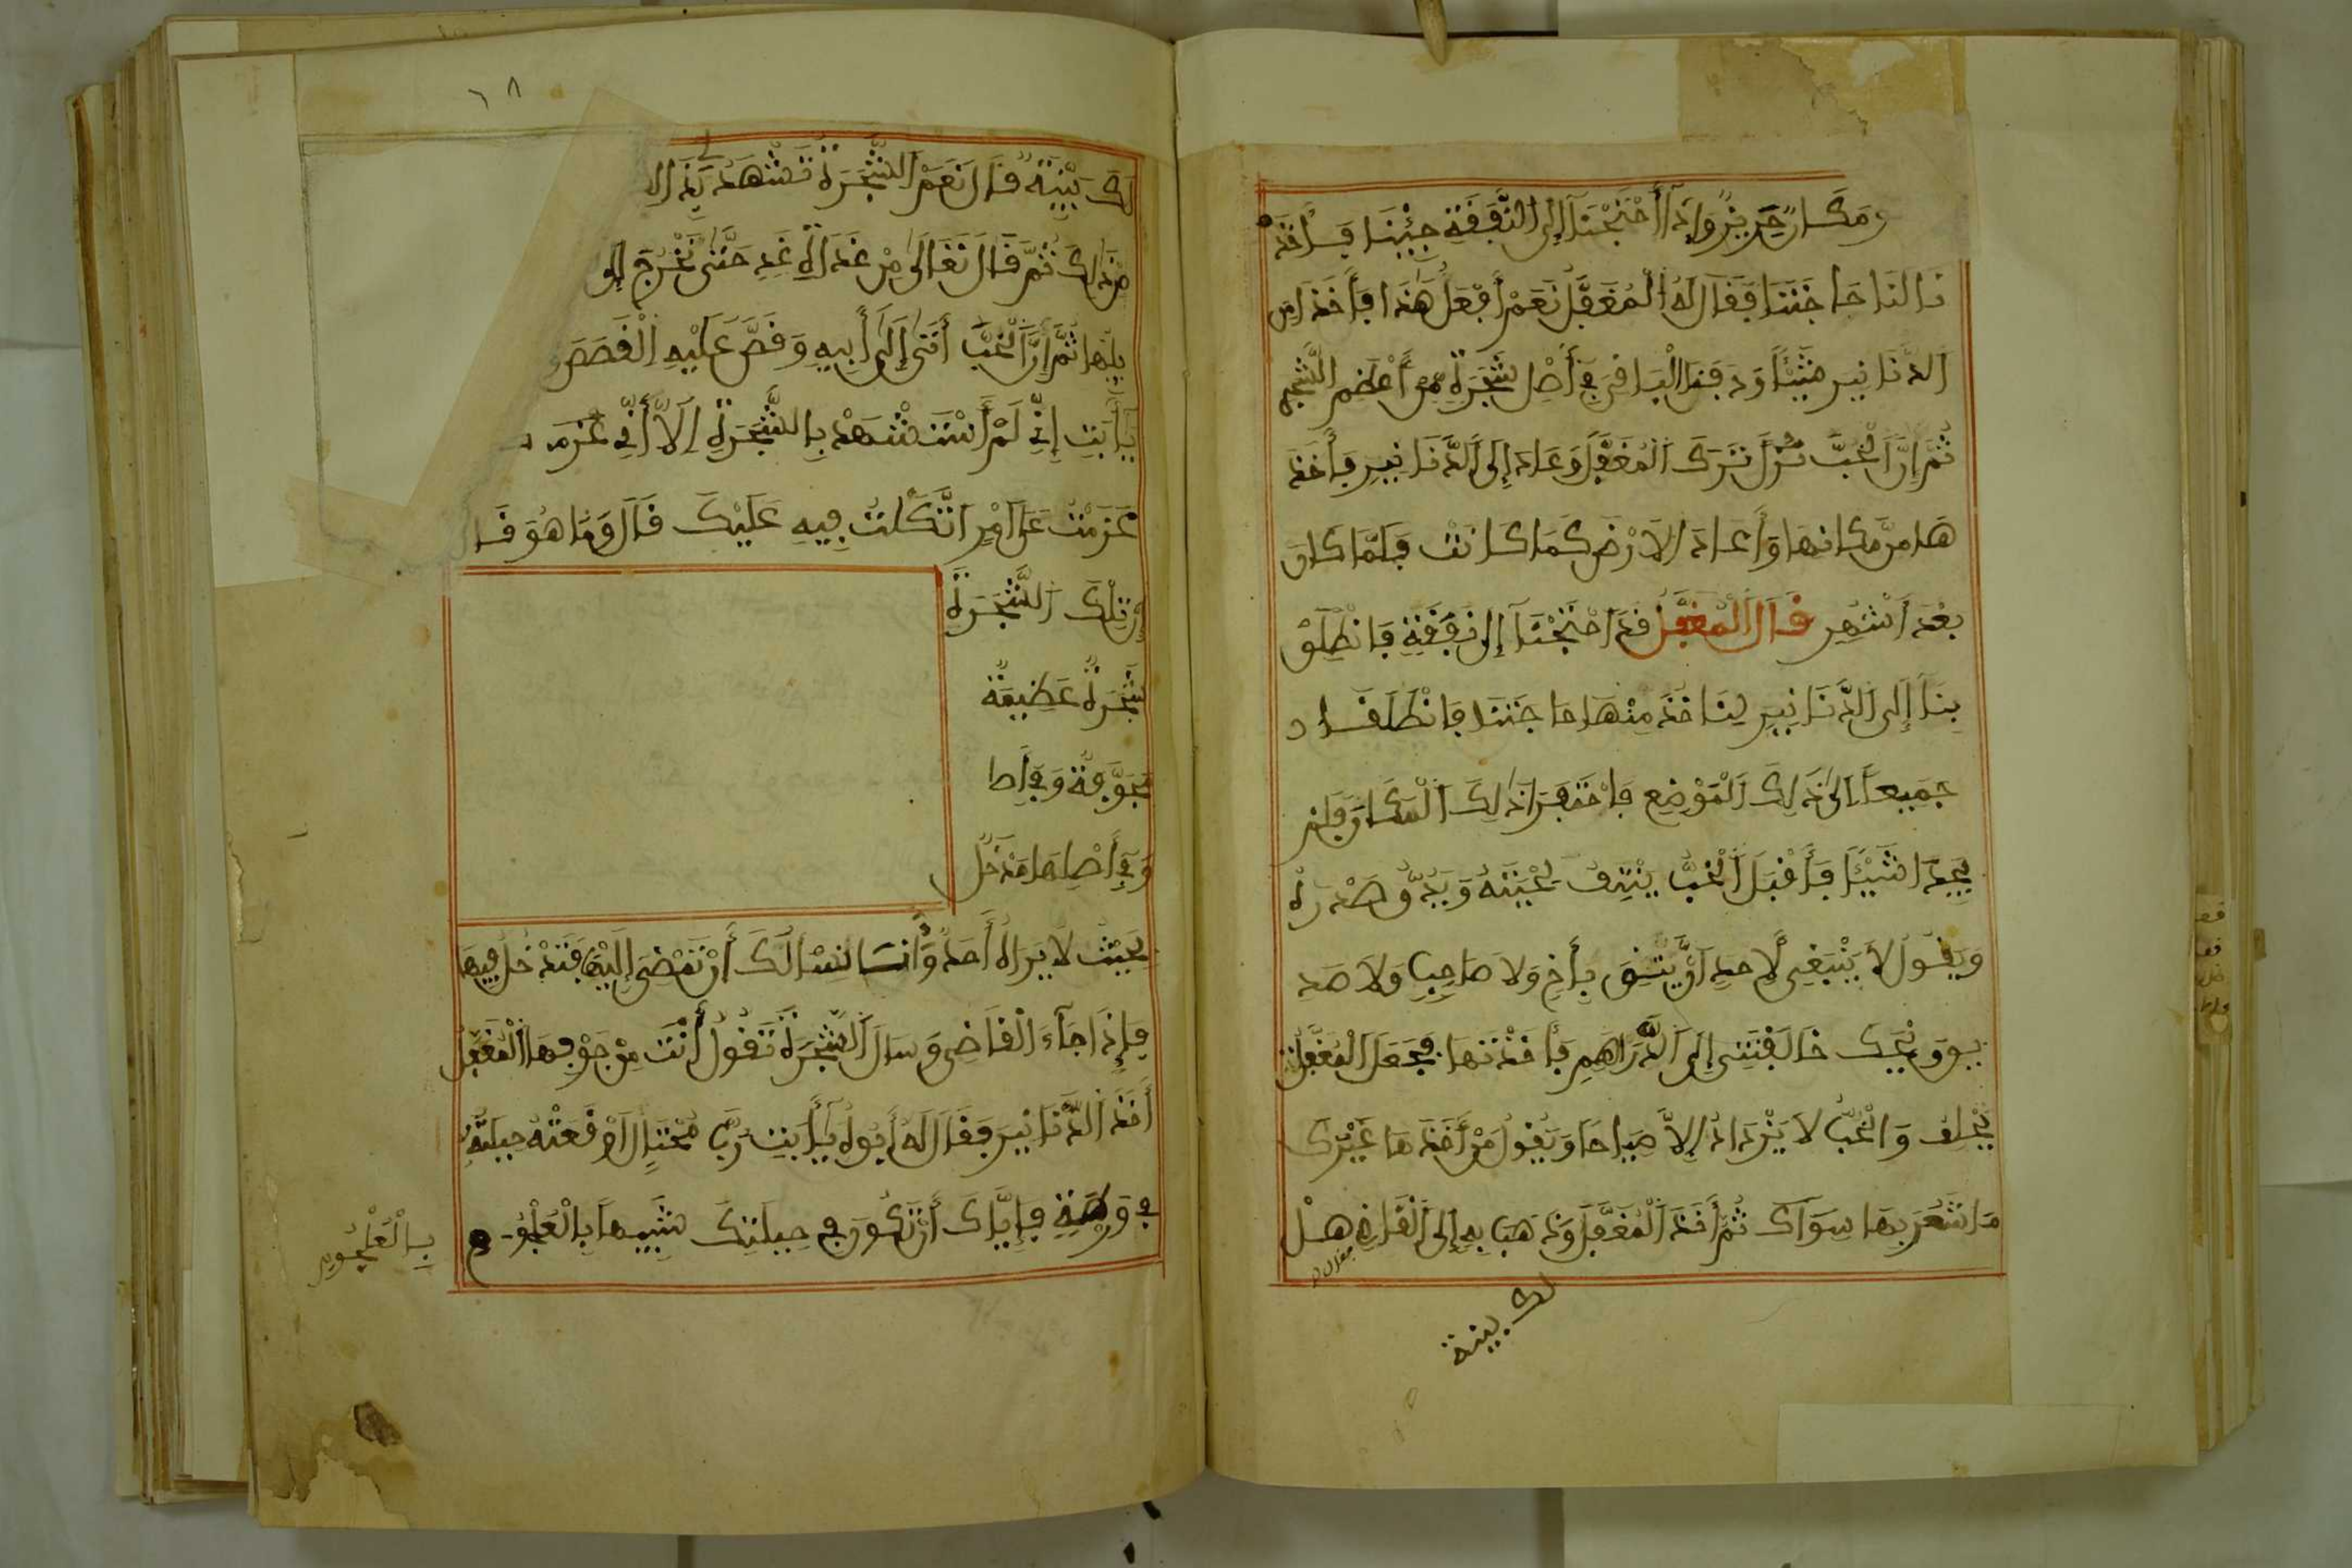 ومكان حريز وإذا احتجنا إلى النفقة جئنا فأخذ
نا لنا حاجتنا فقال له المغفل نعم أفعل هذا فأخذا من
الدنانير شيئا ودفنا الباقي في أصل شجرة من أعظم الشجر
ثم إن الخب نزل ترك المغفل وعاد إلى الدنانير فأخذ
ها من مكانها وأعاد الارض كما كانت فلما كان
بعد أشهر قال المغفل قد احتجنا إلى نفقة فانطلق
بنا إلى الدنانير لناخذ منها حاجتنا فانطلقا د
جميعا إلى ذلك الموضع فاحتفرا ذلك المكان فلم
يجدا شيئا فأقبل الخب ينتف لحيته ويدق صدره
ويقول لا ينبغي لأحد أن يثق بأخ ولا صاحب ولا صد
يق ويحك خالفتني إلى الدراهم فأخذتها فجعل المغفل
يحلف والخب لا يزداد إلا صياحا ويقول من أخذها غيرك
ما شعر بها سواك ثم أخذ المغفل وذهبا به إلى القاضي هل
فقال
لك بينة
٦٨
لك بينة قال نعم الشجرة تشهد لي بذلك
من ذلك ثم قال تعالى من غد الى غد حتى نخرج إلى
يلها ثم إن الخب أتى إلى أبيه وقص عليه القصص و
يا أبت إني لم أستشهد بالشجرة إلا أني عزمت
عزمت على امر اتكلت فيه عليك قال وما هو قال
إن تلك الشجرة
شجرة عظيمة
مجوفة وفي أصلـ
وفي أصلها مدخل
بحيث لا يراه أحد وأنا نسالك أن تمضي إليها فتدخل فيها
فإذا جآء القاضي وسال الشجرة تقول أنت من جوفها المغفل
أخذ الدنانير فقال له أبوه يا أبت رب محتال اوقعته حيلته
في ورطة فإياك أن تكون في حيلتك شبيها بالعلجوم
بالعلجوم